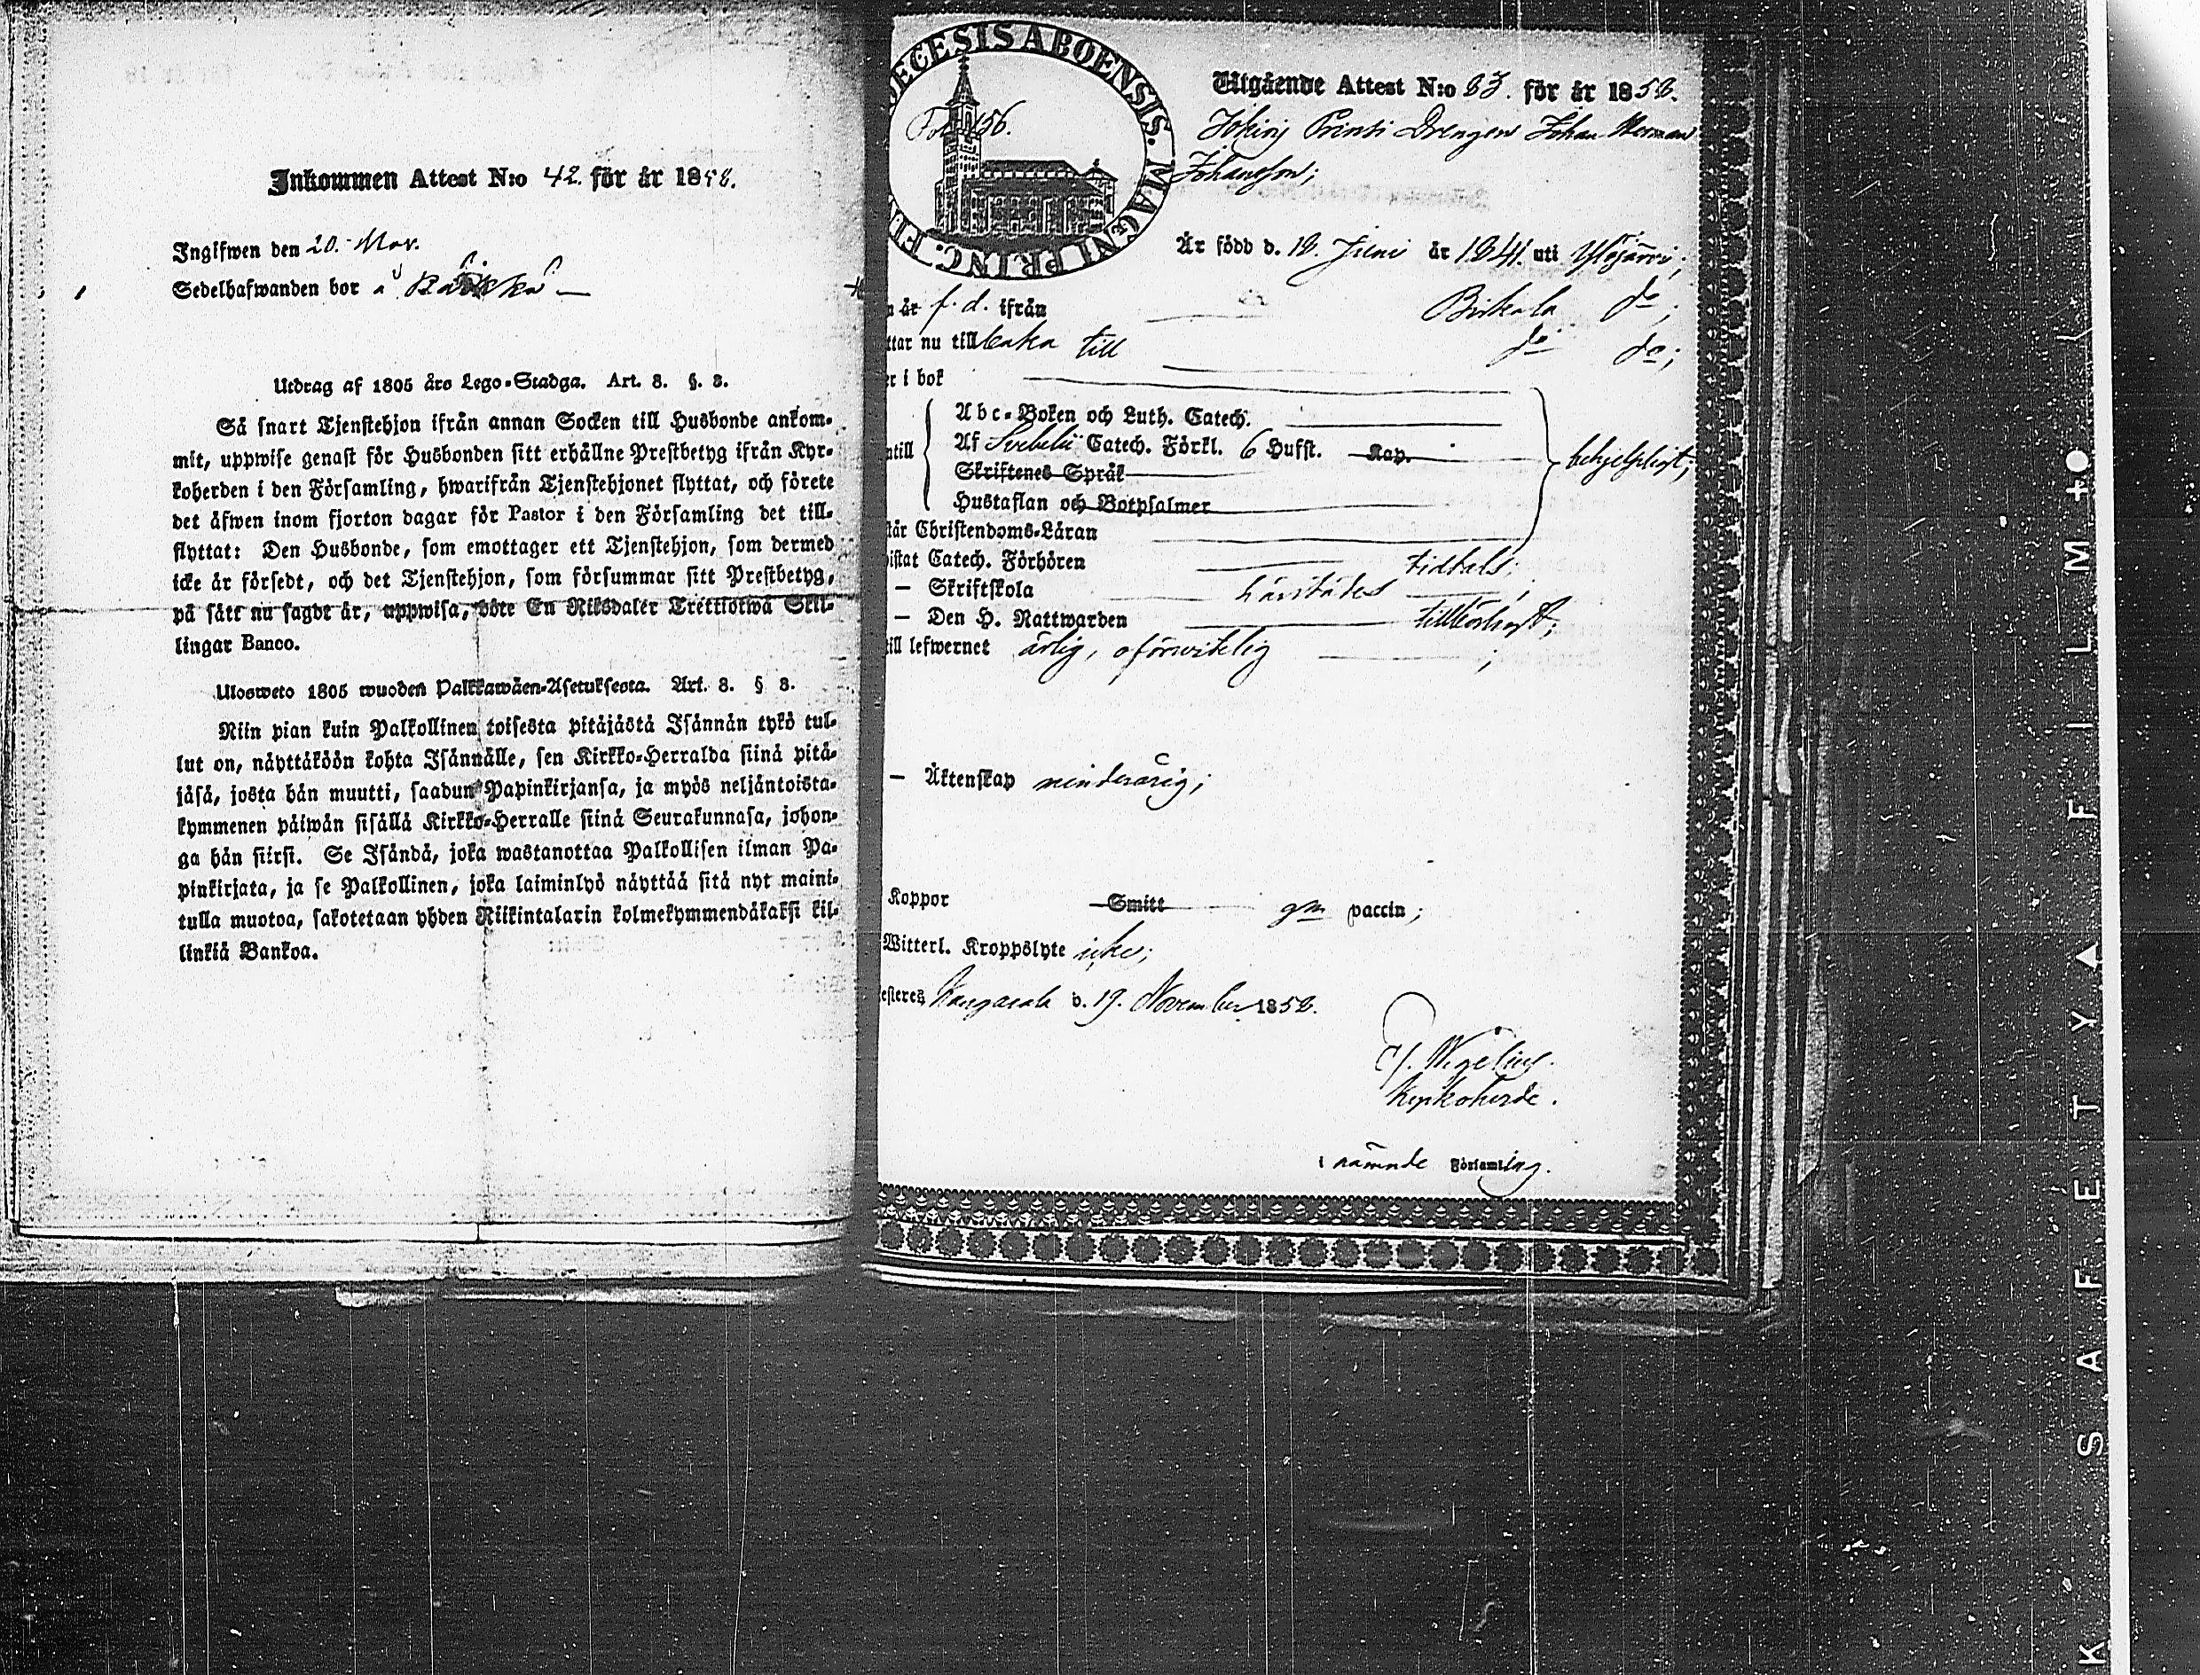 Inkommen Attest N:o 42. för år 1858.
Ingifwen den 20. Nov.
Sedelhafwanden bor å
Utdrag af 1805 års Lego-Stadga. Art. 8. §. 8.
Så snart Tjenstehjon ifrån annan Socken till Husbonde ankom-
mit, uppwise genast för Husbonden sitt erhållne Prestbetyg ifrån Kyr-
koherden i den Församling, hwarifrån Tjenstehjonet flyttat, och förete
det äfwen inom fjorton dagar för Pastor i den Församling det till-
flyttat: Den Husbonde, som emottager ett Tjenstehjon, som dermed
icke är försedt, och det Tjenstehjon, som försummar sitt Prestbetyg,
på sätt nu sagdt är, uppwisa, böte En Riksdaler Trettiotwå Skil-
lingar Banco.
Ulosweto 1805 wuoden Palkkawäen-Asetuksesta. Art. 8. § 8.
Niin pian kuin Palkollinen toisesta pitäjästä Isännän tykö tul-
lut on, näyttäköön kohta Isännälle, sen Kirkko-Herralda siinä pitä-
jäsä, josta hän muutti, saadun Papinkirjansa, ja myös neljäntoista-
kymmenen päiwän sisällä Kirkko-Herralle siinä Seurakunnasa, johon-
ga hän siirsi. Se Isändä, joka wastanottaa Palkollisen ilman Pa-
pinkirjata, ja se Palkollinen, joka laiminlyö näyttää sitä nyt maini-
tulla muotoa, sakotetaan yhden Riikintalarin kolmekymmendäkaksi kil-
linkiä Bankoa.
DECESIS ABOENSIS. MAGNI PRINC. FI
Fol. 156.
Utgående Attest N:o 83. för år 1858.
Drengen Johan Herman
Johansson;
Är född d. 18. Juni år 1841. uti Ylöjärvi;
är f. d. ifrån Birkala do;
ttar nu tillbaka till do do;
er i bok
Abc-Boken och Luth. Catech.
Af Svebelii Catech. Förkl. 6 Hufst. Kap.
Skriftenes Språk
Hustaflan och Botpsalmer
behjelpligt;
står Christendoms-Läran
istat Catech. Förhören tidtals;
— Skriftskola härstädes;
— Den H. Nattwarden tillbörligt;
till lefwernet ärlig, oförvitelig;
— Äktenskap minderårig;
Koppor Smitt gm vaccin;
Witterl. Kroppslyte icke;
esteres Kangasala d. 19. November 1858.
Wegelius.
Kyrkoherde.
i nämnde Församling.
K S A F E T Y ▲ F I L M + ●